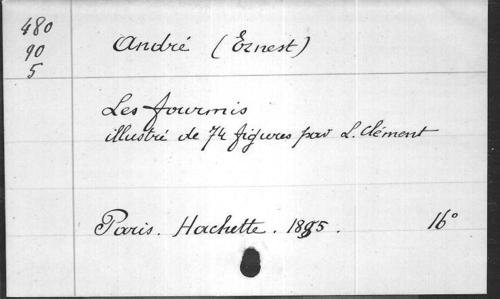 480
90
5
André (Ernest)
Les fourmis
illustré de 74 figures par L. Clément
Paris. Hachette. 1885. 16°